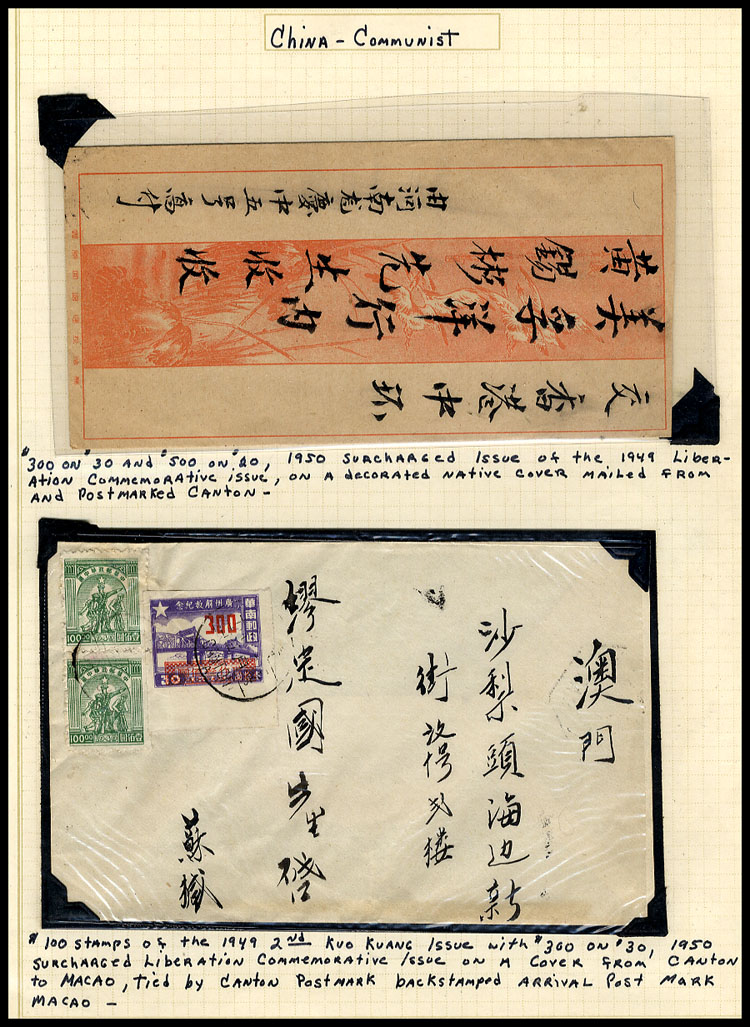 China - Communist
交香港中环
美台洋行内
黄錫彬先生收
由河南龙慶中五号高付
$300 on $30 and $500 on $20, 1950 surcharged Issue of the 1949 Liber-
ation Commemorative issue, on a decorated native cover mailed from
and Postmarked Canton -
澳門
沙梨頭海边新
街
繆定國先生啓
蘇緘
華南郵政
廣州解放紀念
300
30
100.00
100.00
$100 stamps of the 1949 2nd Kuo Kuang Issue with $300 on $30, 1950
surcharged Liberation Commemorative Issue on a cover from Canton
to Macao, Tied by Canton Postmark backstamped arrival Post Mark
Macao -